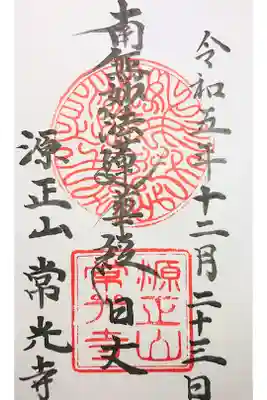 令和五年十二月二十三日
南無妙法蓮華経 日丈
源正山 常光寺
源正山
常光寺